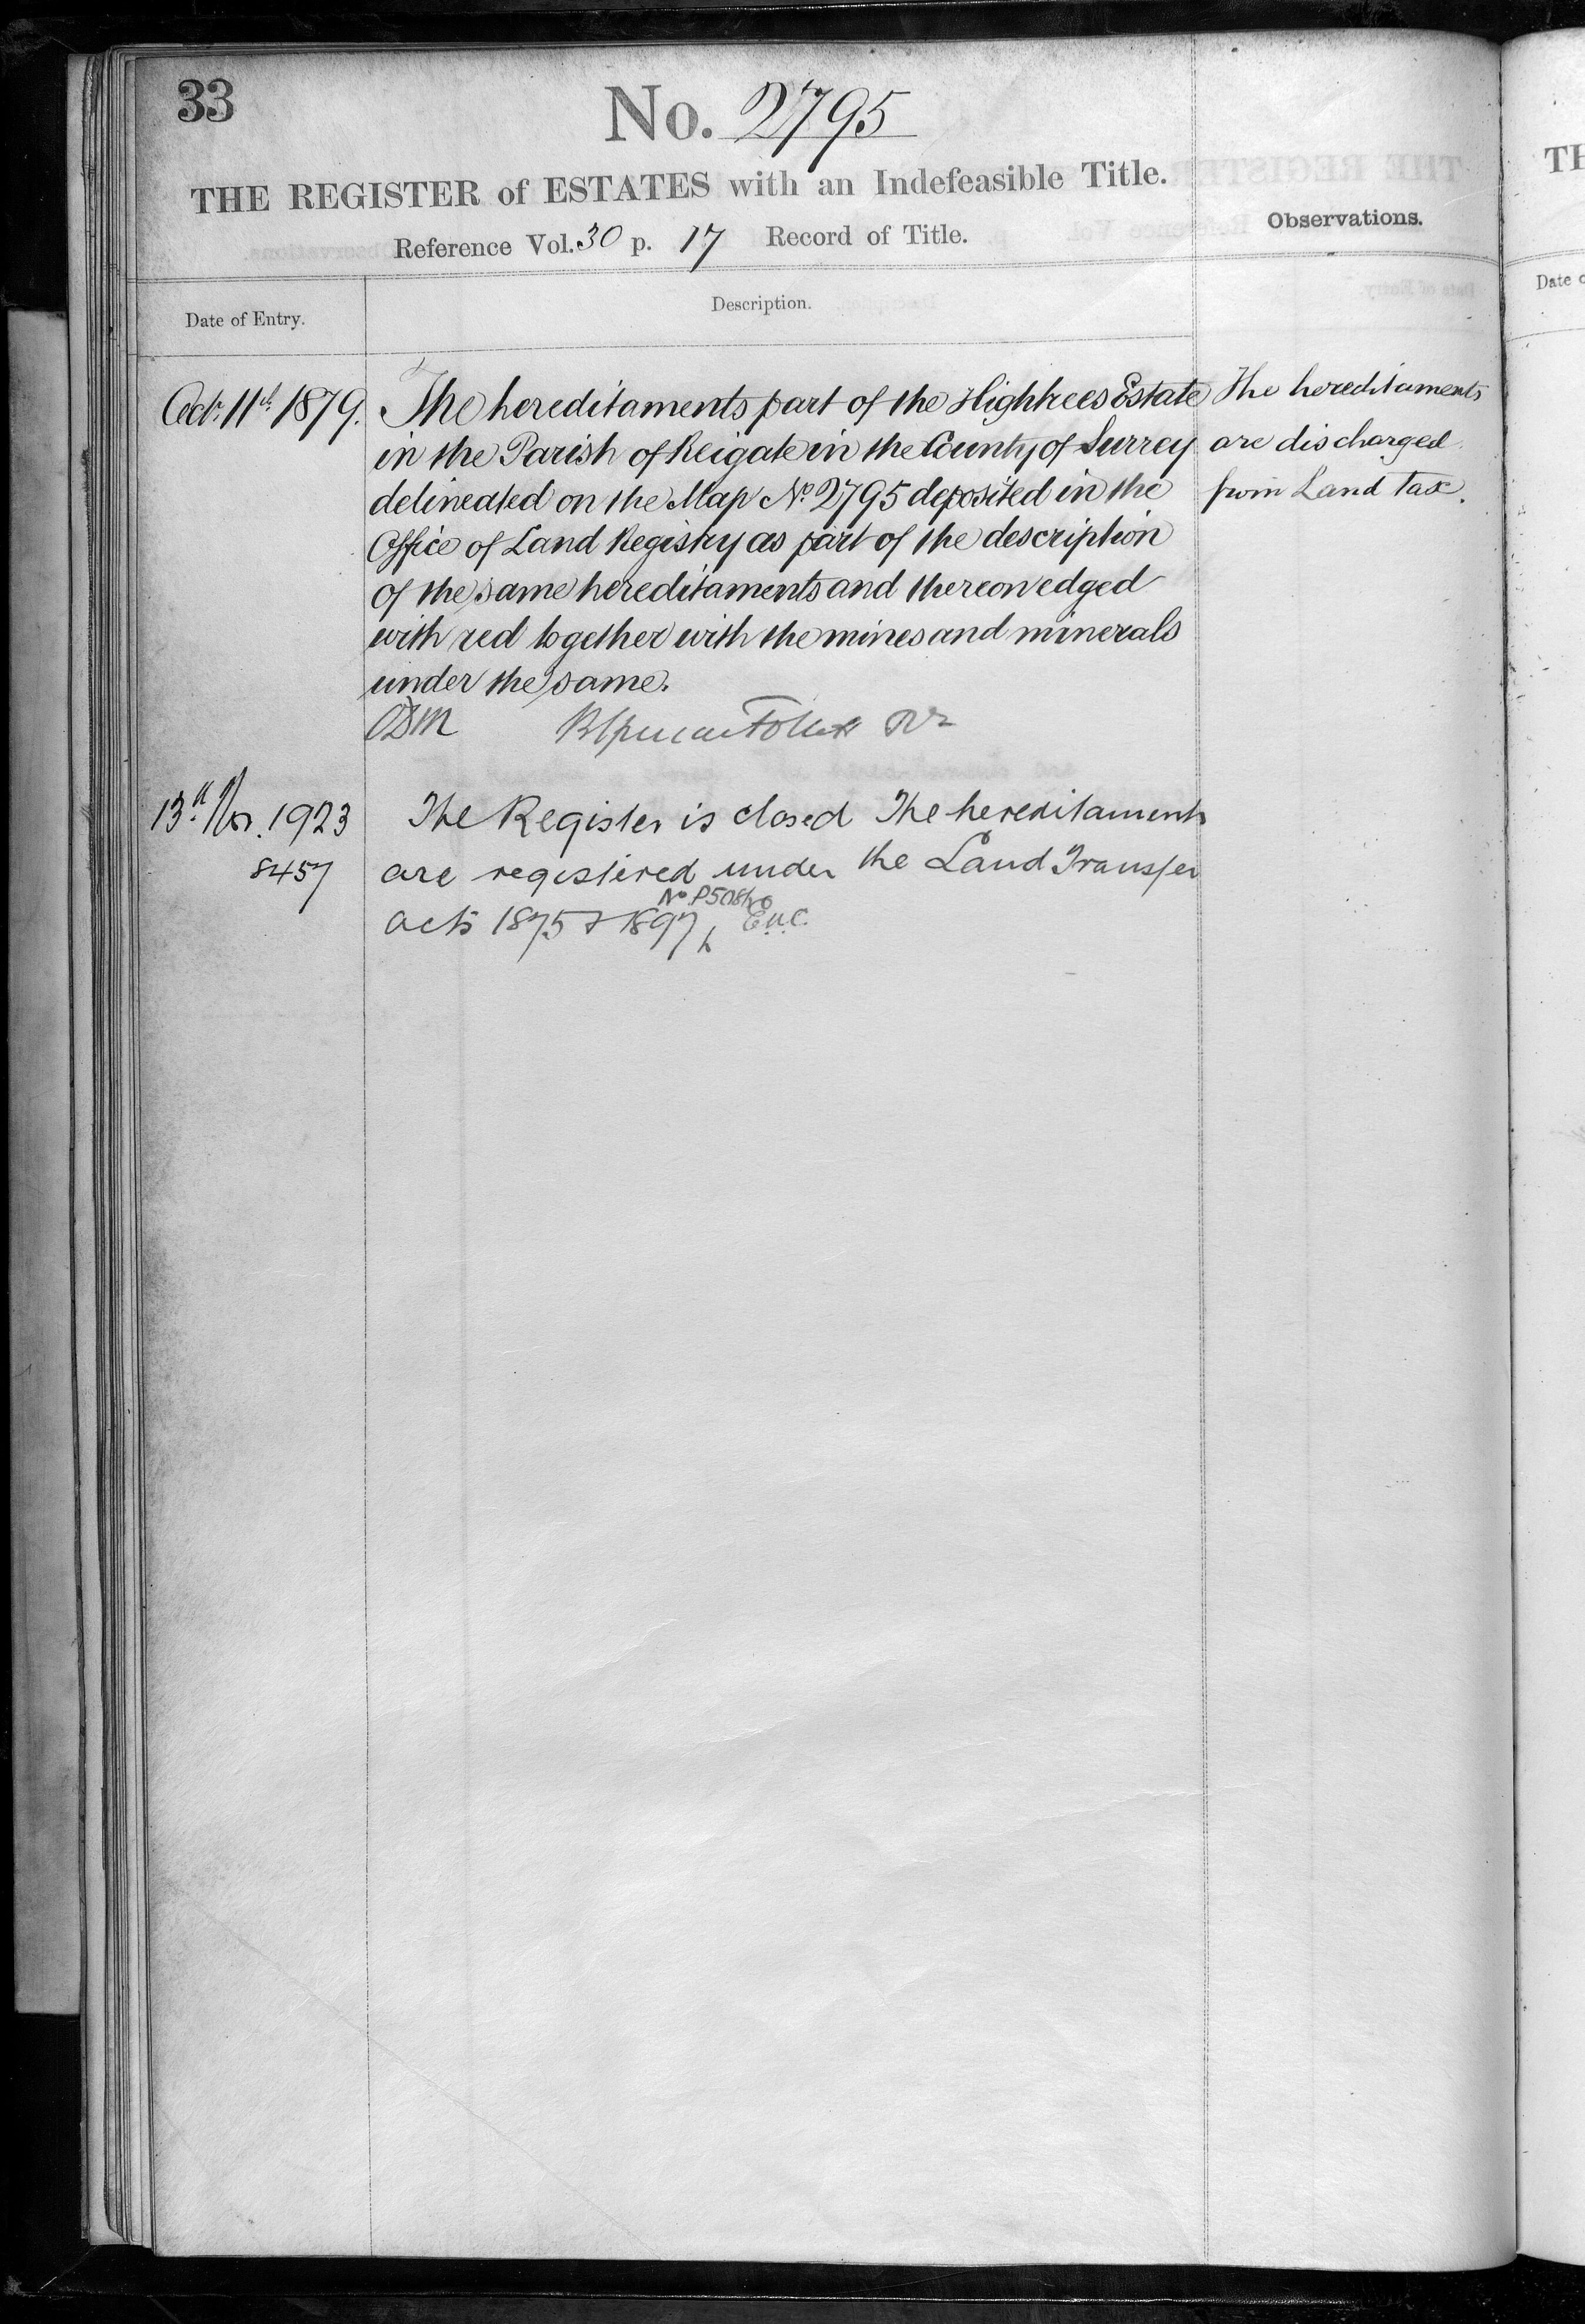 33
No. 2795
THE REGISTER of ESTATES with an Indefeasible Title.
Reference Vol. 30 p. 17 Record of Title.
Observations.
Date of Entry.
Description.
Oct. 11th 1879.
The hereditaments part of the Hightrees Estate
in the Parish of Reigate in the County of Surrey
delineated on the Map No. 2795 deposited in the
Office of Land Registry as part of the description
of the same hereditaments and thereon edged
with red together with the mines and minerals
under the same.
The hereditaments
are discharged
from Land Tax.
13th Nov. 1923
8457
The Register is closed The hereditaments
are registered under the Land Transfer
Acts 1875 & 1897
No
TH
Date o